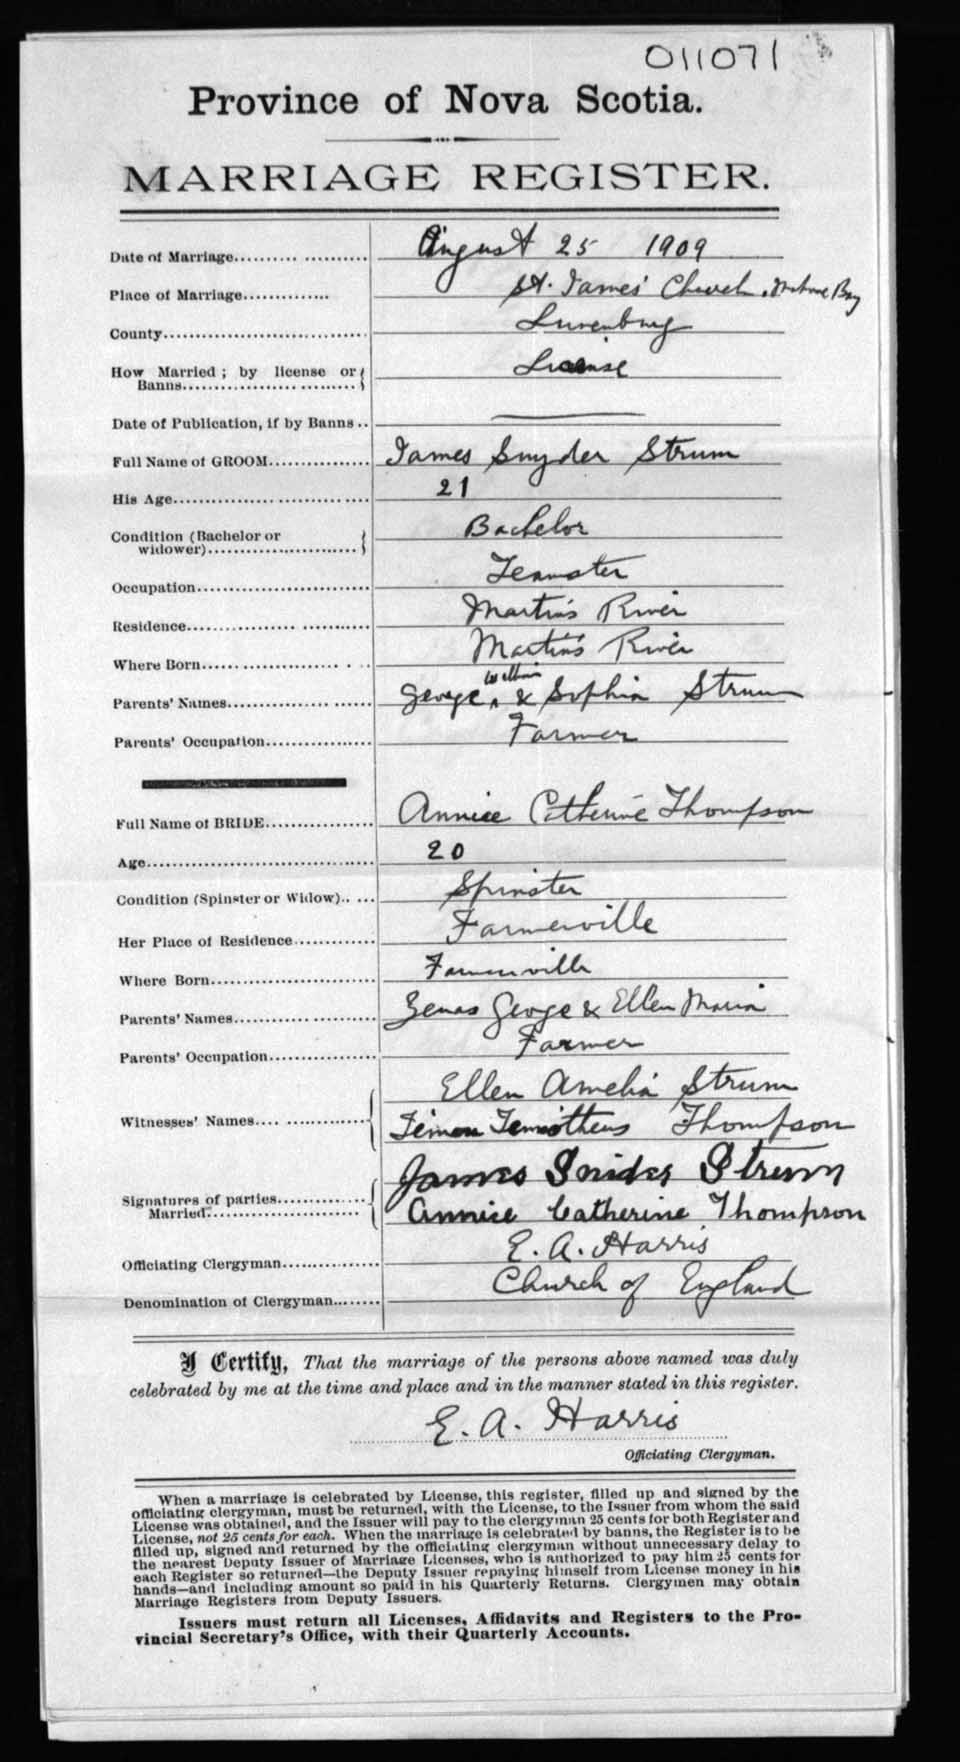 011071
Province of Nova Scotia.
MARRIAGE REGISTER.
Date of Marriage.......... August 25 1909
Place of Marriage.......... St. James' Church, Mahone Bay
County.......... Lunenburg
How Married ; by license or Banns.......... License
Date of Publication, if by Banns ..
Full Name of GROOM.......... James Snyder Strum
His Age.......... 21
Condition (Bachelor or widower).......... Bachelor
Occupation.......... Teamster
Residence.......... Martin's River
Where Born.......... Martin's River
Parents' Names.......... George & Sophia Strum
Parents' Occupation.......... Farmer
Full Name of BRIDE.......... Annice Catherine Thompson
Age.......... 20
Condition (Spinster or Widow)..... Spinster
Her Place of Residence.......... Farmerville
Where Born.......... Farmerville
Parents' Names.......... Zenas George & Ellen Maria
Parents' Occupation.......... Farmer
Witnesses' Names.......... Ellen Amelia Strum
Thompson
Signatures of parties Married.......... James Snider Strum
Annice Catherine Thompson
Officiating Clergyman.......... E. A. Harris
Denomination of Clergyman........ Church of England
I Certify, That the marriage of the persons above named was duly
celebrated by me at the time and place and in the manner stated in this register.
E. A. Harris
Officiating Clergyman.
When a marriage is celebrated by License, this register, filled up and signed by the
officiating clergyman, must be returned, with the License, to the Issuer from whom the said
License was obtained, and the Issuer will pay to the clergyman 25 cents for both Register and
License, not 25 cents for each. When the marriage is celebrated by banns, the Register is to be
filled up, signed and returned by the officiating clergyman without unnecessary delay to
the nearest Deputy Issuer of Marriage Licenses, who is authorized to pay him 25 cents for
each Register so returned—the Deputy Issuer repaying himself from License money in his
hands—and including amount so paid in his Quarterly Returns. Clergymen may obtain
Marriage Registers from Deputy Issuers.
Issuers must return all Licenses, Affidavits and Registers to the Pro-
vincial Secretary's Office, with their Quarterly Accounts.